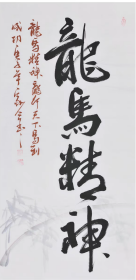 龍馬精神
龍馬精神龍行天下馬到
成功